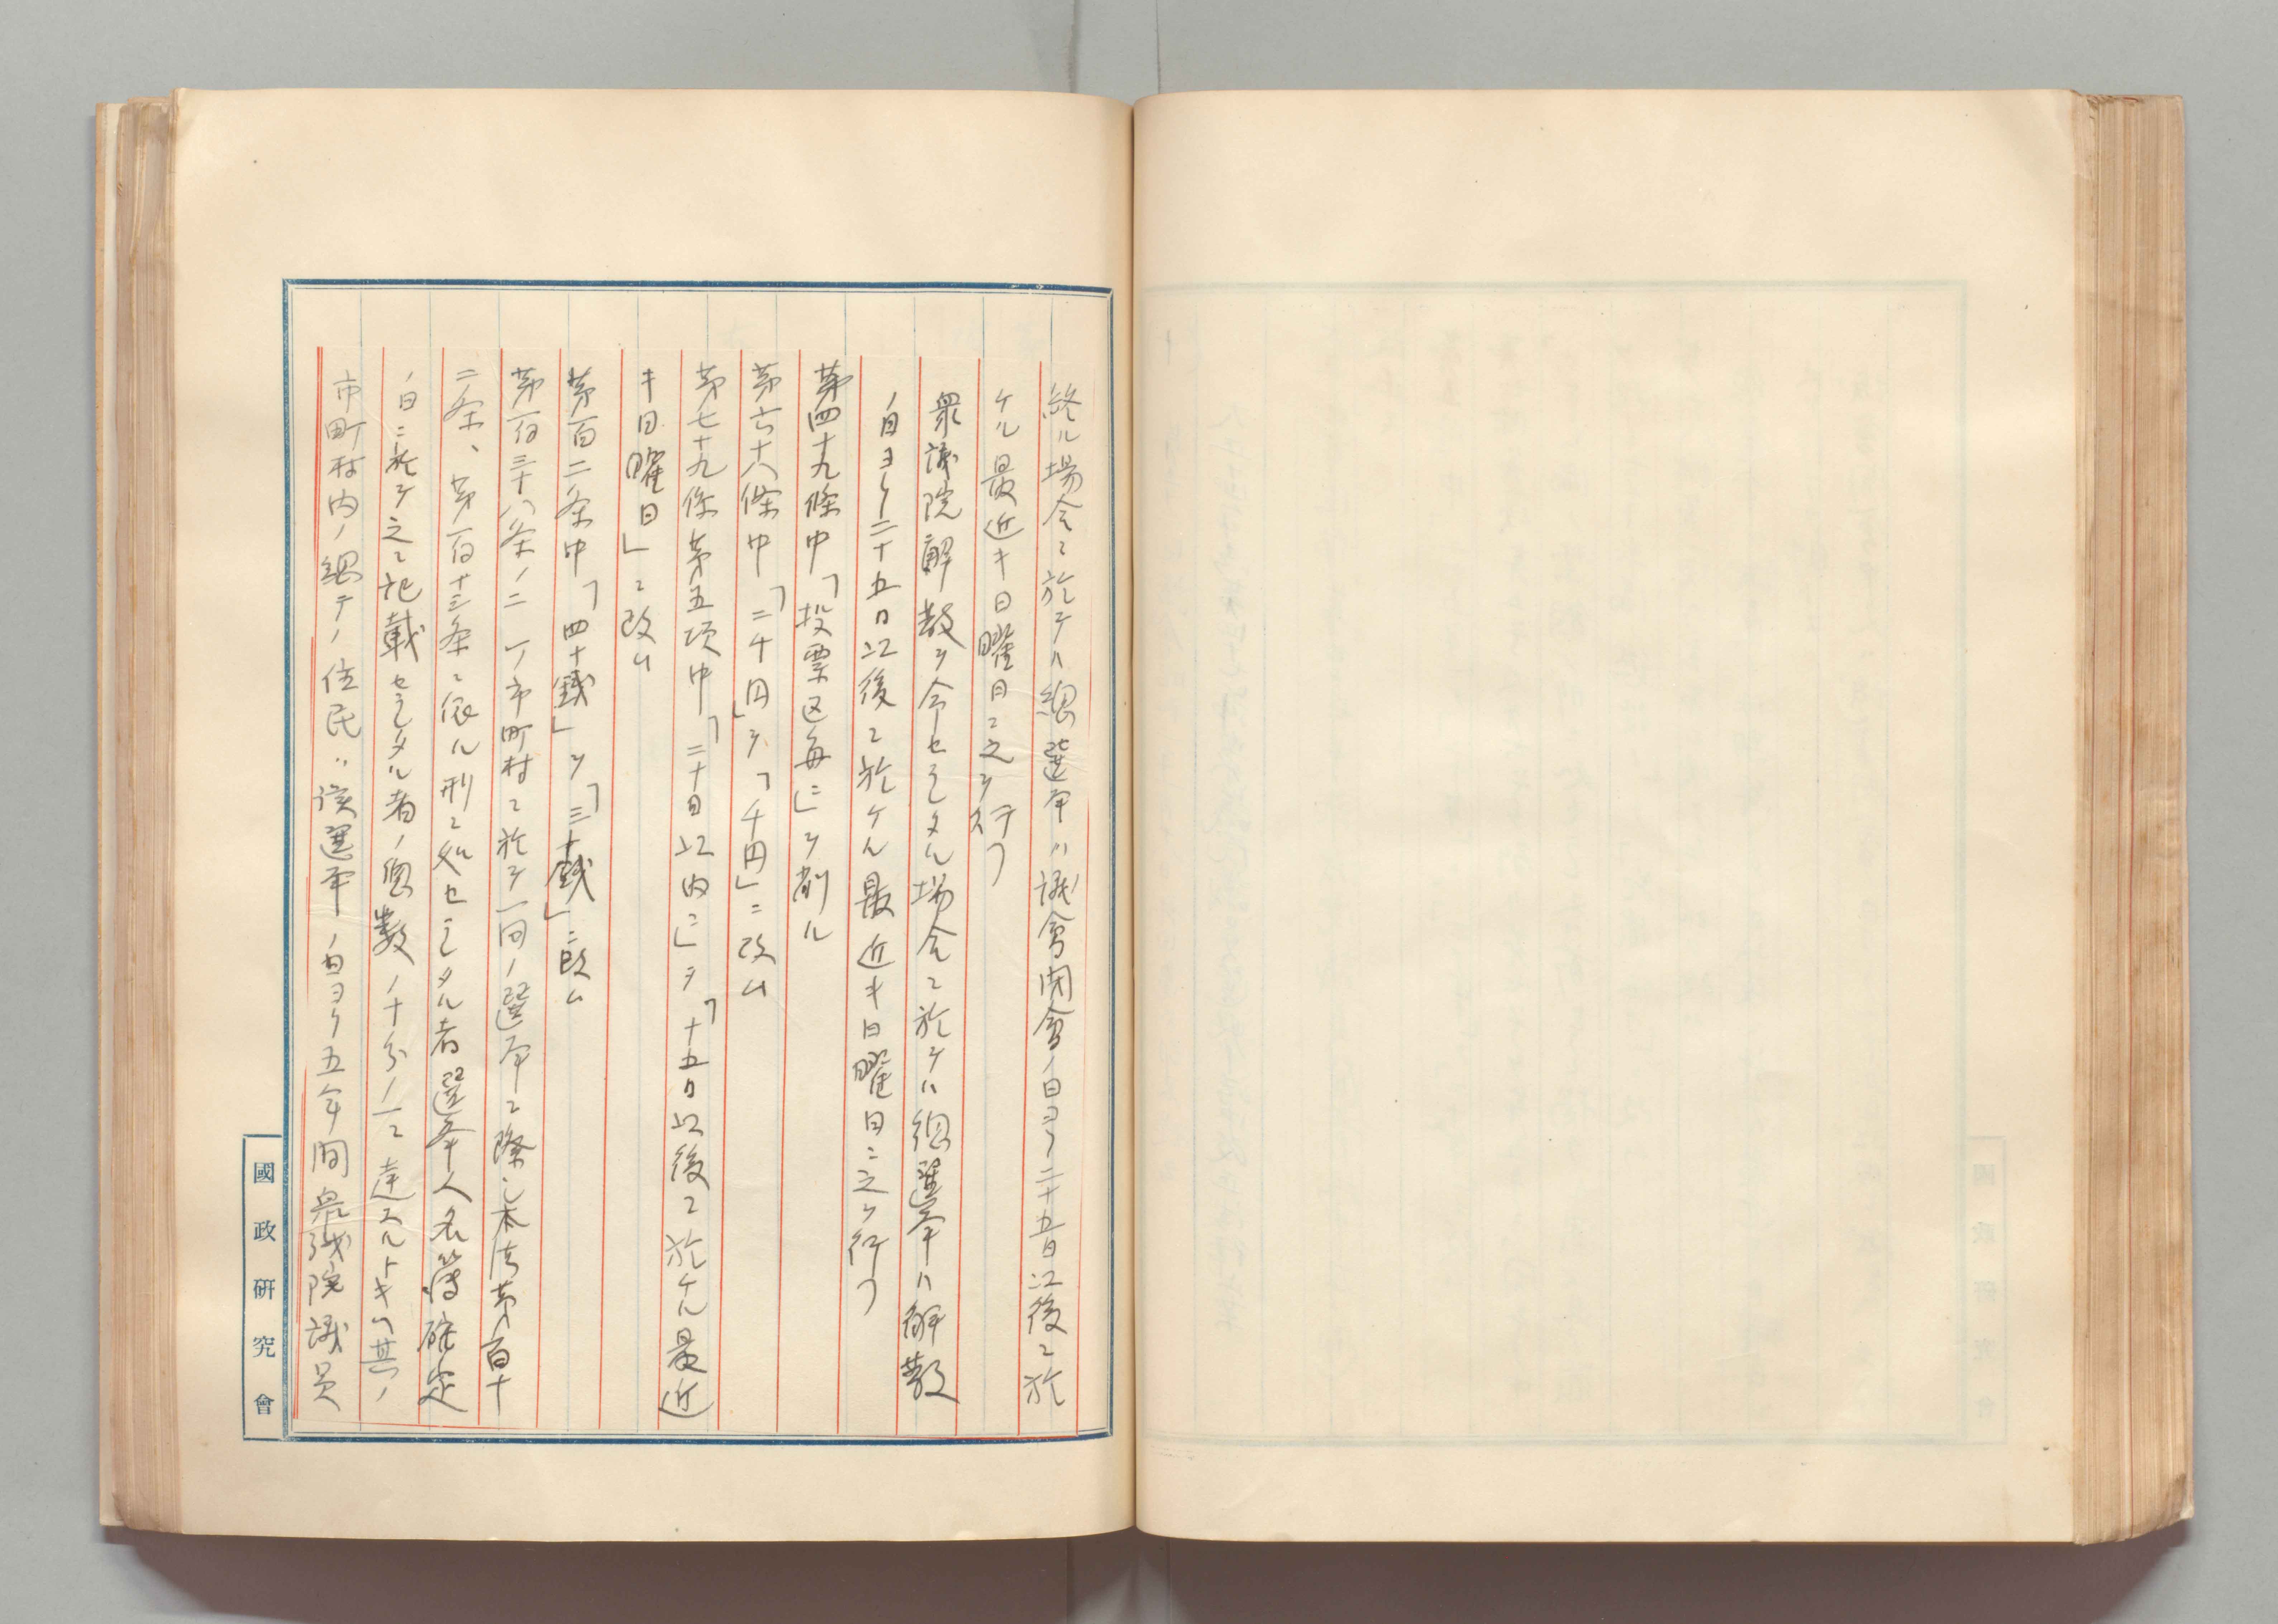 終ル場合ニ於テハ総選挙ハ議會閉會ノ日ヨリ二十五日以後ニ於
ケル最近キ日曜日ニ之ヲ行フ
衆議院解散ヲ命セラレタル場合ニ於テハ総選挙ハ解散
ノ日ヨリ二十五日以後ニ於ケル最近キ日曜日ニ之ヲ行フ
第四十九條中「投票区毎ニ」ヲ削ル
第六十八條中「二千円」ヲ「千円」ニ改ム
第七十九條第五項中「二十日以内ニ」ヲ「十五日以後ニ於ケル最近
キ日曜日」ニ改ム
第百二条中「四十銭」ヲ「三十銭」ニ改ム
第百三十八条ノ二 一市町村ニ於テ一回ノ選挙ニ際シ本法第百十
二条、第百十三条ニ依ル刑ニ処セラレタル者選挙人名簿確定
ノ日ニ於テ之ニ記載セラレタル者ノ総数ノ十分ノ一ニ達スルトキハ其ノ
市町村内ノ総テノ住民ハ該選挙ノ日ヨリ五年間衆議院議員
國政研究會